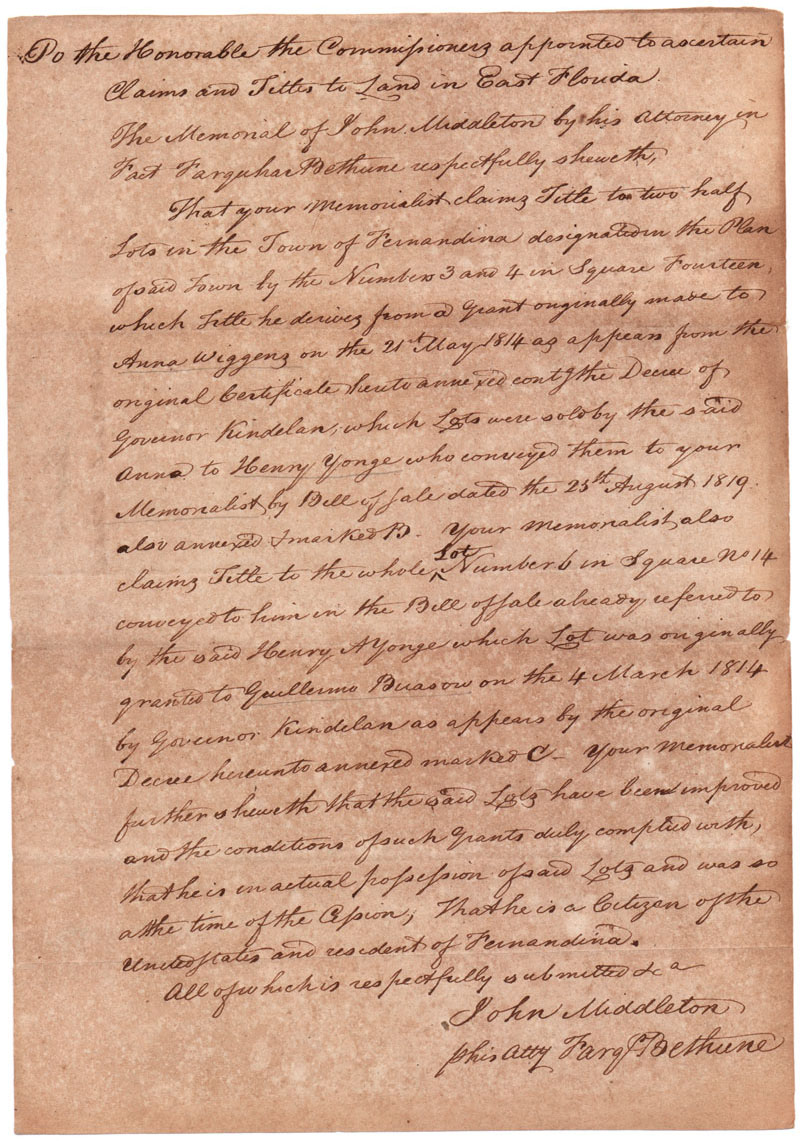 To the Honorable the Commissioners appointed to ascertain
Claims and Titles to Land in East Florida.
The Memorial of John Middleton by his Attorney in
Fact Farquhar Bethune respectfully sheweth,
That your Memorialist claims Title to two half
Lots in the Town of Fernandina designated in the Plan
of said Town by the Numbers 3 and 4 in Square Fourteen,
which Title he derives from a Grant originally made to
Anna Wiggens on the 21st May 1814 as appears from the
original Certificate hereto annexed contg the Decree of
Governor Kindelan, which Lots were sold by the said
Anna to Henry Yonge who conveyed them to your
Memorialist by Bill of Sale dated the 25th August 1819.
also annexed & marked B. Your Memorialist also
claims Title to the whole Lot Number 6 in Square No 14
conveyed to him in the Bill of Sale already referred to
by the said Henry A Yonge which Lot was originally
granted to Guillermo Buasow on the 4 March 1814
by Governor Kindelan as appears by the original
Decree hereunto annexed marked C - Your Memorialist
further sheweth that the said Lots have been improved
and the conditions of such Grants duly complied with,
that he is in actual possession of said Lots and was so
at the time of the Cession, That he is a Citizen of the
United States and resident of Fernandina.
All of which is respectfully submitted &a
John Middleton
p his Atty Farqr Bethune